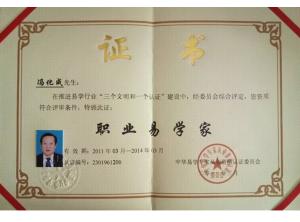 证书
冯化成先生：
在推进易学行业“三个文明和一个认证”建设中，经委员会综合评定，您资质
符合评审条件，特授此证：
职业易学家
有效期：2011年03月—2014年03月
认证编号：2301961200